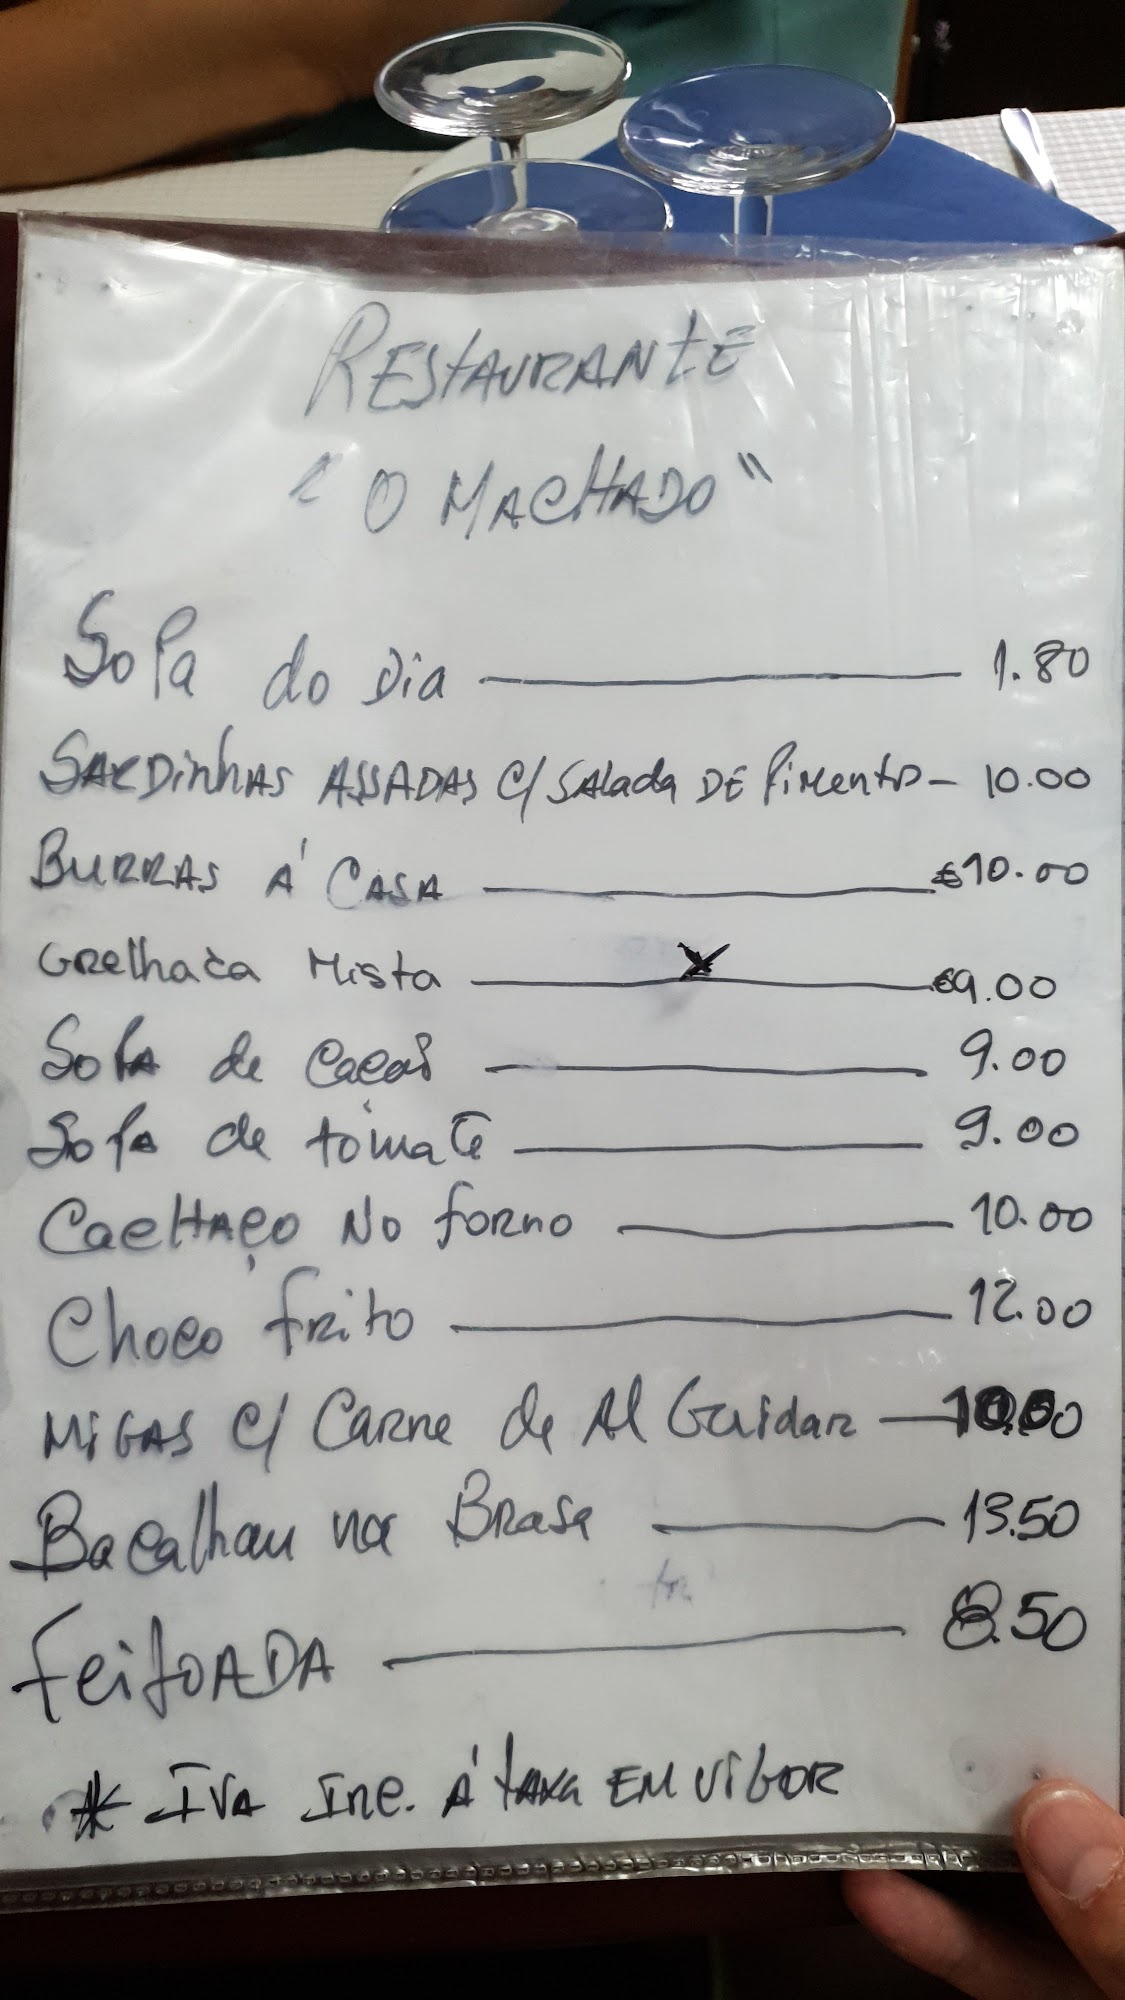 RESTAURANTE
"O MACHADO"
Sopa do Dia — 1.80
SARDinhAS ASSADAS C/ SAlada DE Pimento — 10.00
BURRAS Á CASA — €10.00
Grelhaca Mista — €9.00
Sopa de Cacao — 9.00
Sopa de tomate — 9.00
CacHAço No forno — 10.00
Choco frito — 12.00
MiGAS C/ Carne de Al Guidar —
Bacalhau na Brasa — 13.50
FeijoADA — 8.50
* IVA Inc. Á taxa EM ViGOR